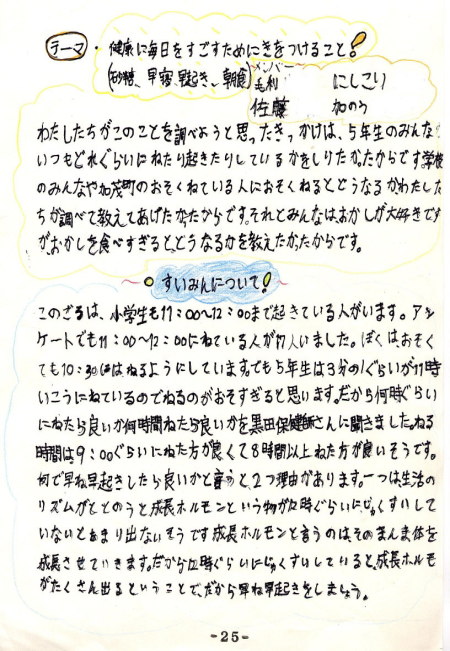 テーマ・健康に毎日をすごすためにきをつけること!
(砂糖、早寝、早起き、朝食)
メンバー
毛利 にしこり
佐藤 加のう
わたしたちがこのことを調べようと思ったきっかけは、5年生のみんな
いつもどれぐらいにねたり起きたりしているかをしりたかったからです学校
のみんなや加茂町のおそくねている人におそくねるとどうなるかわたした
ちが調べて教えてあげたかったからです。それとみんなはおかしが大好きです
が、おかしを食べすぎるとどうなるかを教えたかったからです。
すいみんについて!
このごろは、小学生も11:00〜12:00まで起きている人がいます。アン
ケートでも11:00〜12:00にねている人が17人いました。ぼくは、おそく
ても10:30にはねるようにしています。でも5年生は3分の1ぐらいが11時
いこうにねているのでねるのがおそすぎると思います。だから何時ぐらい
にねたら良いか何時間ねたら良いかを黒田保健師さんに聞きました。ねる
時間は、9:00ぐらいにねた方が良くて8時間以上ねた方が良いそうです。
何で早ね早起きしたら良いかと言うと2つ理由があります。一つは生活の
リズムがととのうと成長ホルモンという物が12時ぐらいにじゅくすいして
いないとあまり出ないそうです成長ホルモンと言うのはそのまんま体を
成長させていきます。だから12時ぐらいにじゅくすいしていると、成長ホルモ
がたくさん出るということで、だから早ね早起きをしましょう。
-25-